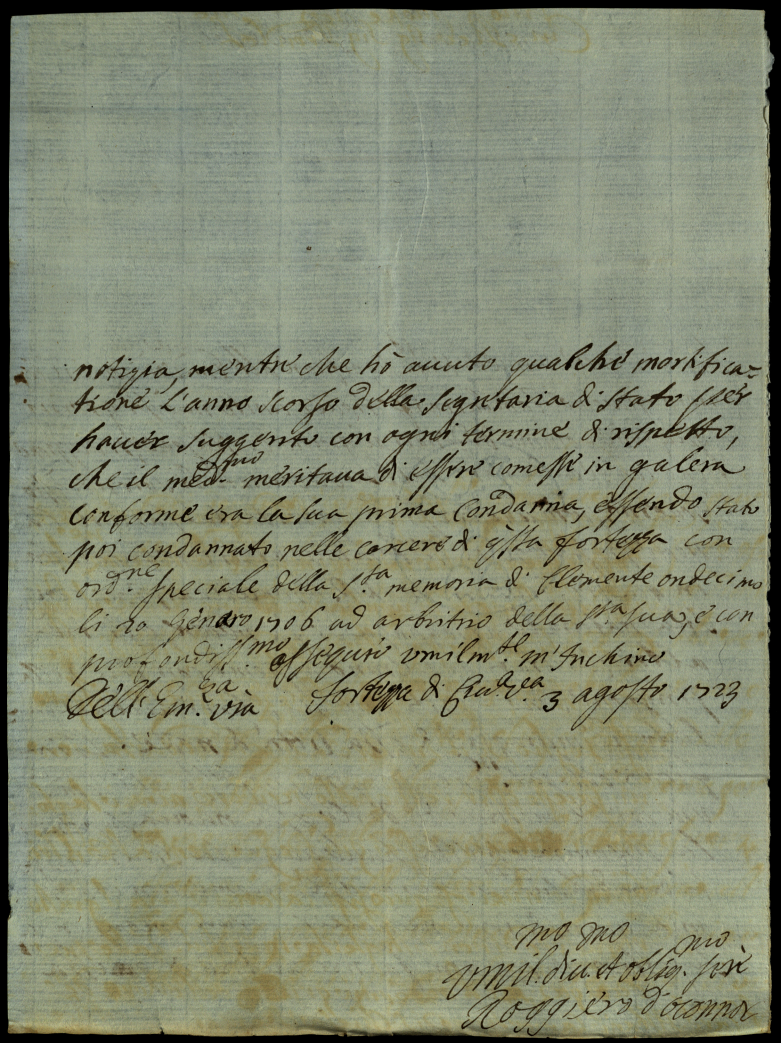 notizia, mentre che hò auuto qualche mortifica=
tione L'anno scorso della Segretaria di Stato per
hauer suggerito con ogni termine di rispetto,
che il med.mo meritaua di essere comesse in galera
conforme era la sua prima Condanna, essendo stato
poi condannato nelle carcere di questa fortezza con
ord.ne speciale della S.ta memoria di Clemente ondecimo
li 20 Genaro 1706 ad arbitrio della S.ta sua, e con
profondiss.mo ossequio vmilm.te m'Inchino
Dell'Em.za vra fortezza di Ciu.a V.a 3 agosto 1723
vmil.mo diu.mo et oblig.mo ser.e
Roggiero d'oconnor